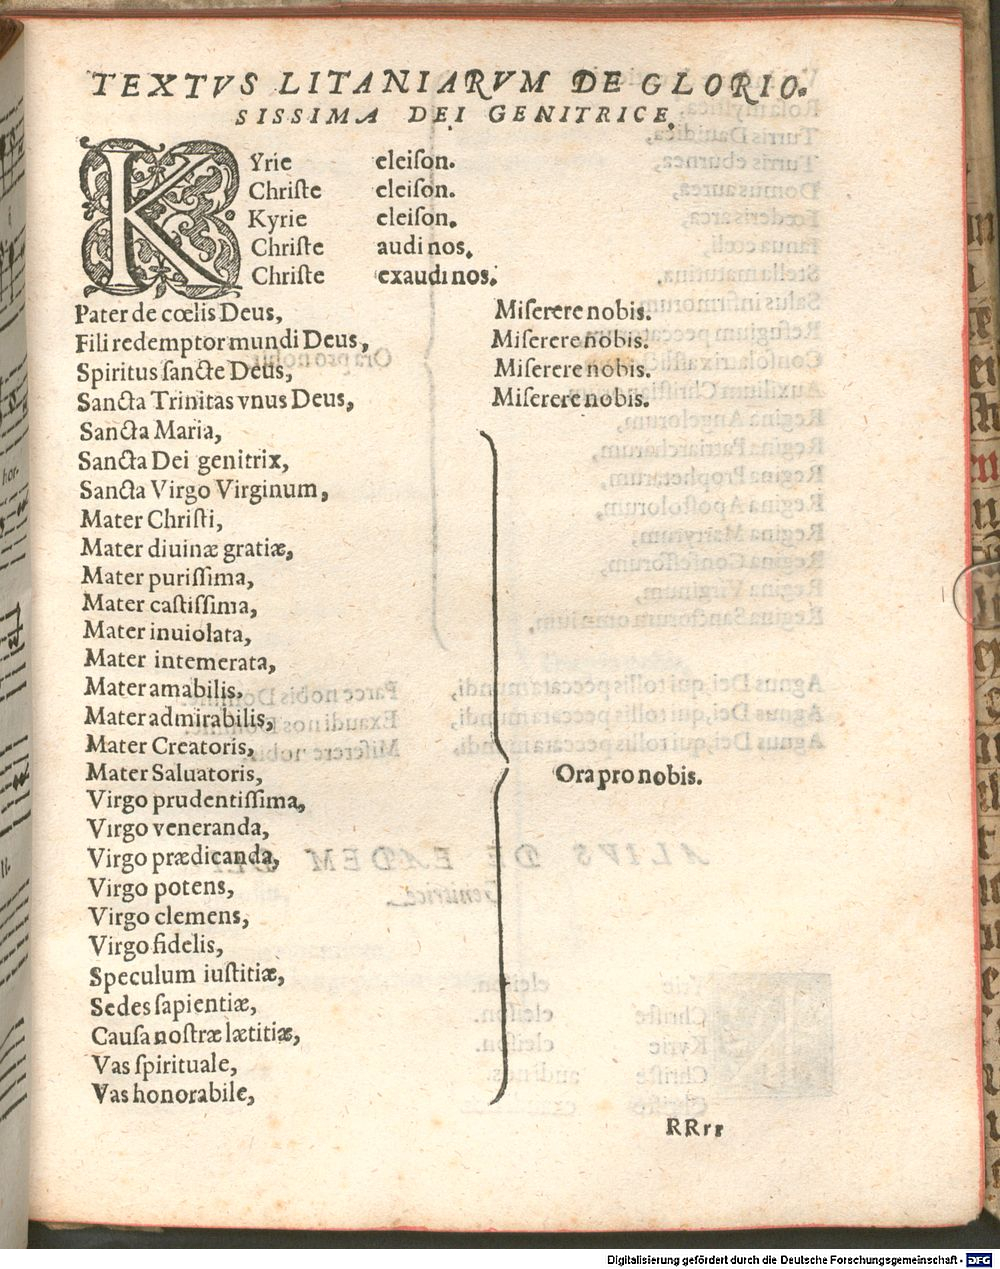 TEXTVS LITANIARVM DE GLORIO-
SISSIMA DEI GENITRICE,
KYrie eleiſon.
Chriſte eleiſon.
Kyrie eleiſon.
Chriſte audi nos.
Chriſte exaudi nos.
Pater de cœlis Deus, Miſerere nobis.
Fili redemptor mundi Deus, Miſerere nobis.
Spiritus ſancte Deus, Miſerere nobis.
Sancta Trinitas vnus Deus, Miſerere nobis.
Sancta Maria,
Sancta Dei genitrix,
Sancta Virgo Virginum,
Mater Chriſti,
Mater diuinæ gratiæ,
Mater puriſſima,
Mater caſtiſſima,
Mater inuiolata,
Mater intemerata,
Mater amabilis,
Mater admirabilis,
Mater Creatoris,
Mater Saluatoris, Ora pro nobis.
Virgo prudentiſſima,
Virgo veneranda,
Virgo prædicanda,
Virgo potens,
Virgo clemens,
Virgo fidelis,
Speculum iuſtitiæ,
Sedes ſapientiæ,
Cauſa noſtræ lætitiæ,
Vas ſpirituale,
Vas honorabile,
RRrr
Digitalisierung gefördert durch die Deutsche Forschungsgemeinschaft - DFG